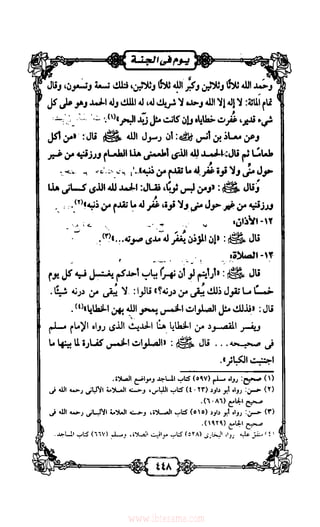 يوم في الجنة
وحَمد الله ثلاثًا وثلاثين وكبَّر الله ثلاثًا وثلاثين، فتلك تسعة وتسعون، وقال
تمام المائة: لا إله إلا الله وحده لا شريك له، له الملك وله الحمد وهو على كل
شيء قدير، غُفرت خطاياه وإن كانت مثل زبد البحر»(١).
وعن معاذ بن أنس: أن رسول الله ﷺ قال: «من أكل
طعامًا ثم قال: الحمد لله الذي أطعمني هذا الطعام ورزقنيه من غير
حول منّي ولا قوة غُفر له ما تقدم من ذنبه».
وقال ﷺ: «ومن لبس ثوبًا، فقال: الحمد لله الذي كساني هذا
ورزقنيه من غير حول مني ولا قوة، غُفر له ما تقدم من ذنبه»(٢).
١٢- الأذان:
قال ﷺ: «إن المؤذن يُغفر له مدى صوته...»(٣).
١٣- الصلاة:
قال ﷺ: «أرأيتم لو أن نهرًا بباب أحدكم يغتسل فيه كل يوم
خمسًا ما تقول ذلك يُبقي من درنه؟» قالوا: لا يُبقي من درنه شيئًا.
قال: «فذلك مثل الصلوات الخمس يمحو الله بهن الخطايا»(٤).
ويفسر المقصود من الخطايا هنا الحديث الذي رواه الإمام مسلم
في صحيحه... قال ﷺ: «الصلوات الخمس كفارة لما بينها ما
اجتنبت الكبائر».
(١) صحيح: رواه مسلم (٥٩٧) كتاب المساجد ومواضع الصلاة.
(٢) حسن: رواه أبو داود (٤٠٢٣) كتاب اللباس، وحسنه العلامة الألباني رحمه الله في
صحيح الجامع (٦٠٨٦).
(٣) حسن: رواه أبو داود (٥١٥) كتاب الصلاة، وحسنه العلامة الألباني رحمه الله في
صحيح الجامع (١٩٢٩).
(٤) متفق عليه: رواه البخاري (٥٢٨) كتاب مواقيت الصلاة، ومسلم (٦٦٧) كتاب المساجد.
٤٤٨
www.ibtesama.com